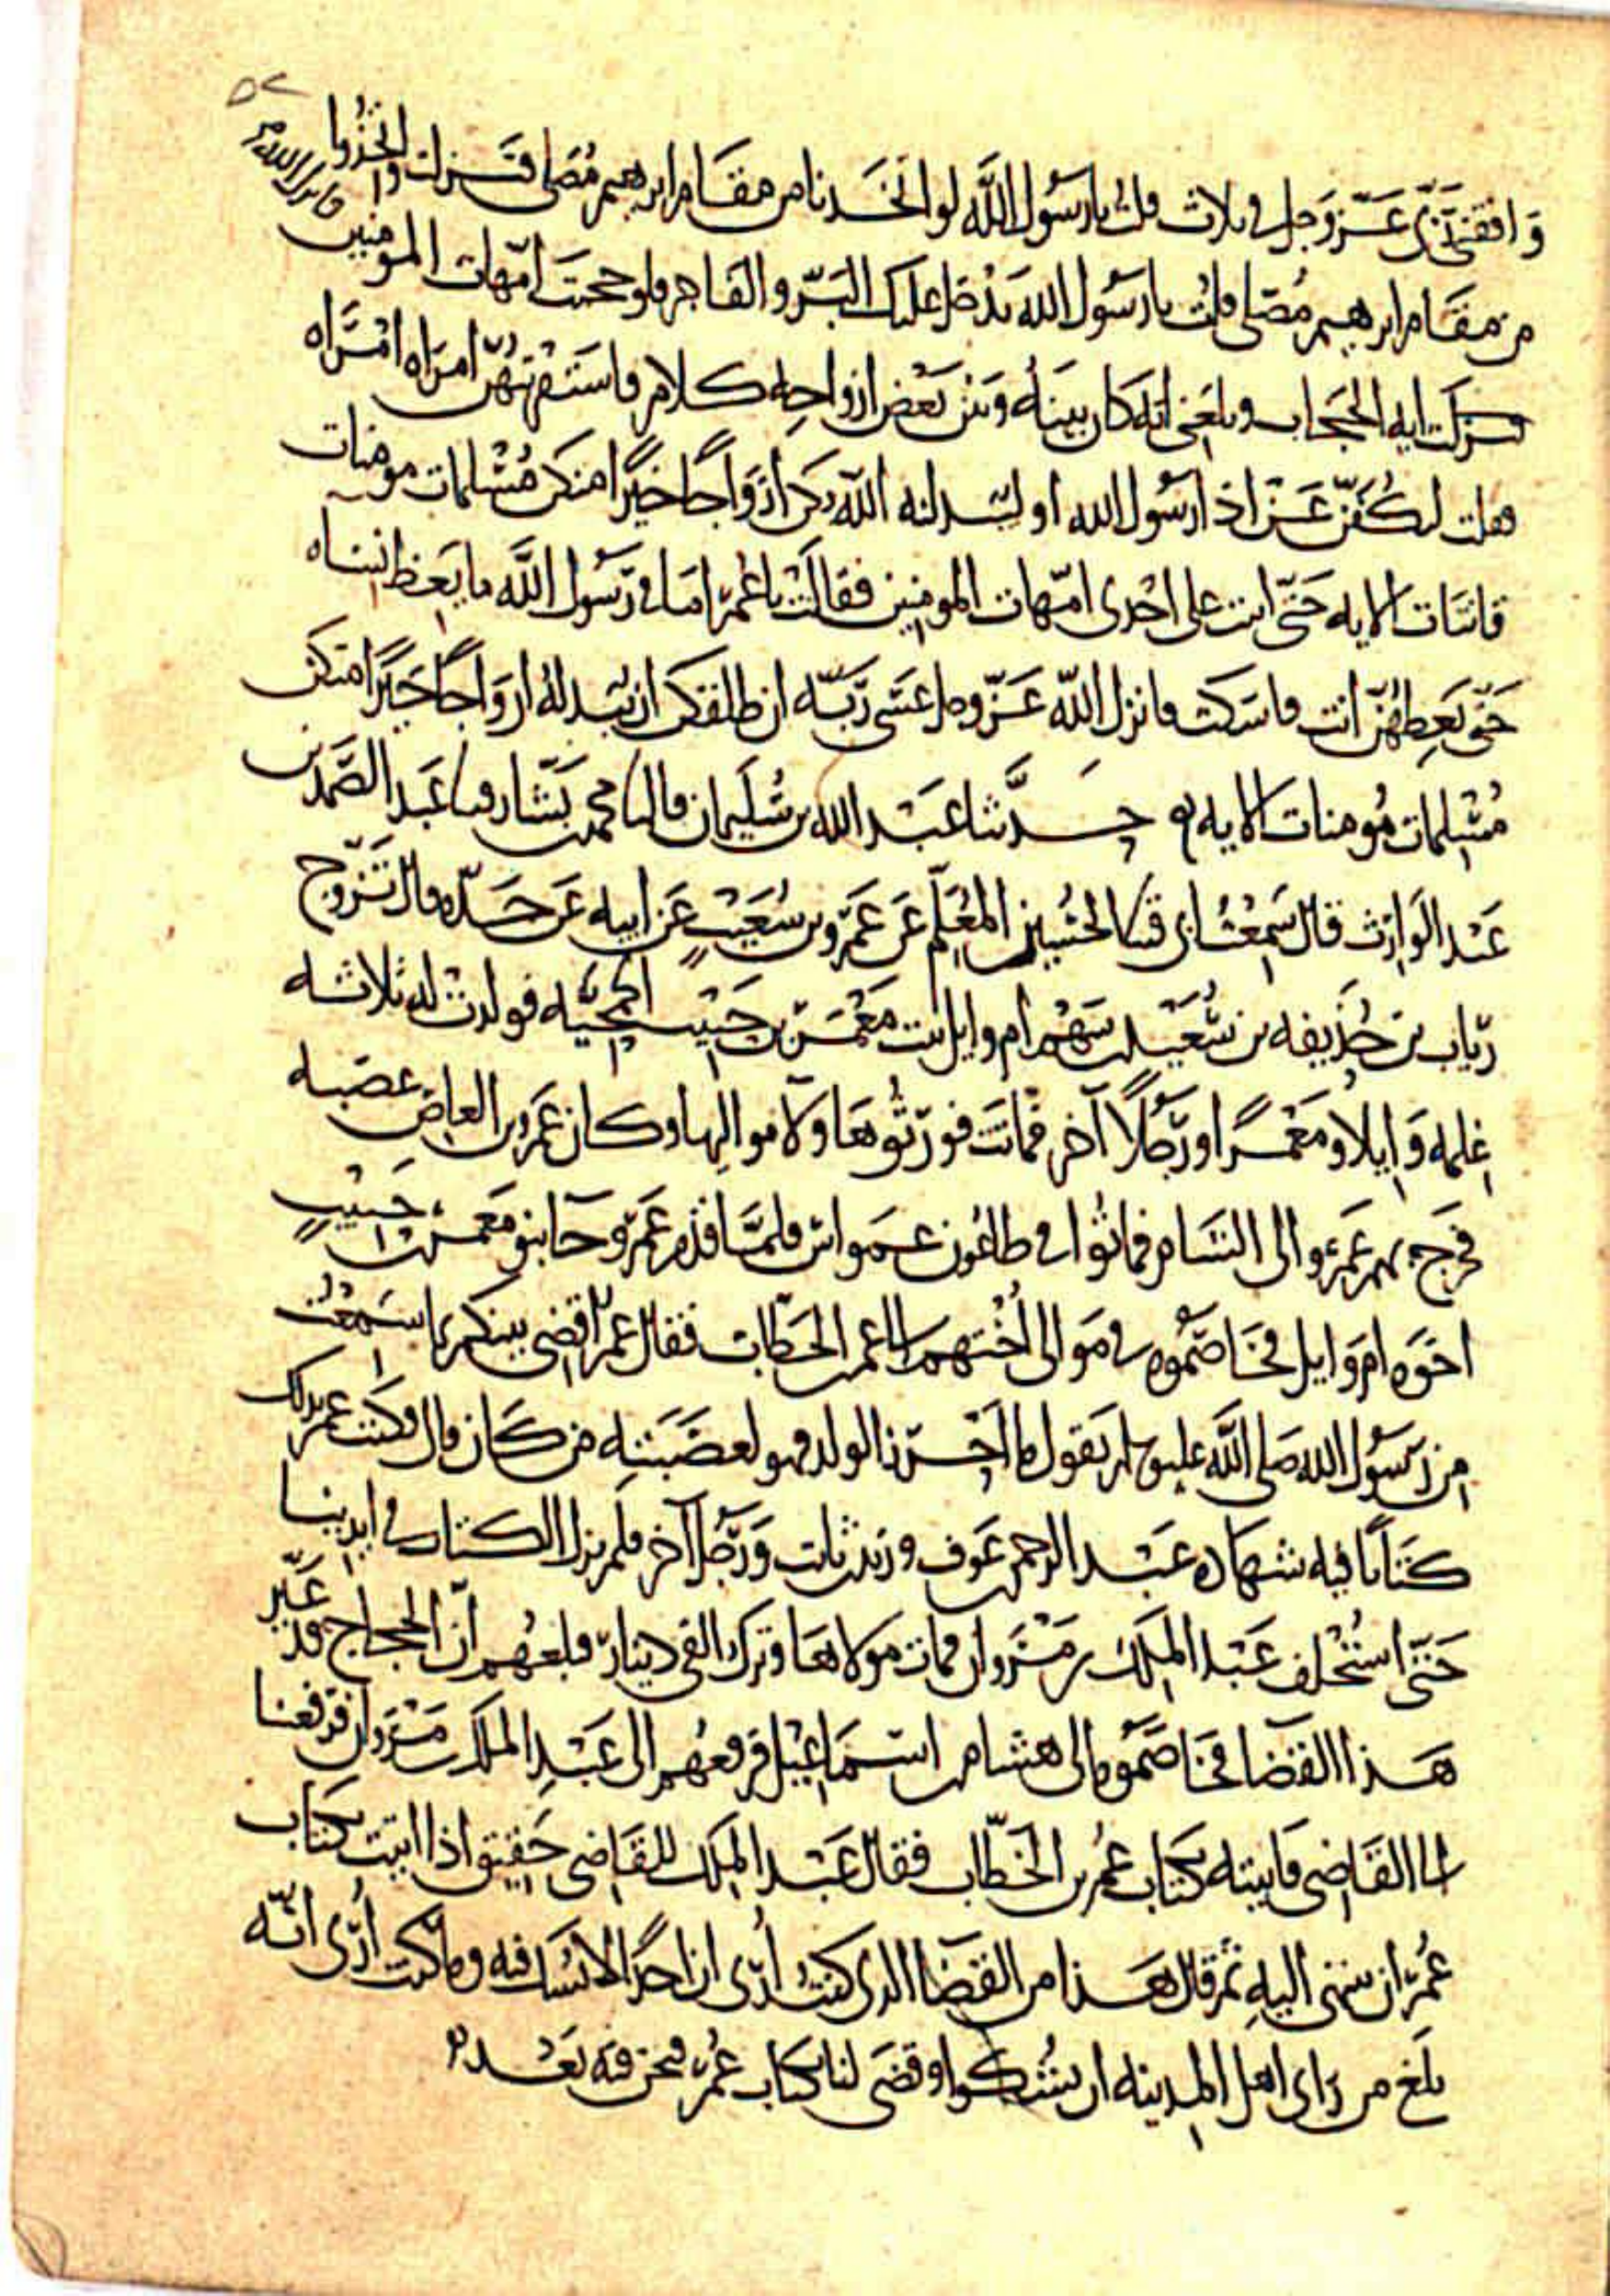 ٥٢
وافقني ربي عز وجل في ثلاث قلت يا رسول الله لو اتخذنا من مقام ابرهيم مصلى فنزلت واتخذوا
من مقام ابرهيم مصلى قلت يا رسول الله يدخل عليك البر والفاجر فلو حجبت امهات المومنين فانزل الله
نزلت ايه الحجاب وبلغني انه كان بينه وبين بعض ازواجه كلام فاستقريتهن امراه امراه
فقلت لتكفن عن اذا رسول الله او ليبدلنه الله بكن ازواجا خيرا منكن مسلمات مومنات
قانتات الايه حتى اتيت على احدى امهات المومنين فقالت يا عمر اما في رسول الله ما يعظ نساه
حتى تعظهن انت فامسكت فانزل الله عز وجل عسى ربه ان طلقكن ان يبدله ازواجا خيرا منكن
مسلمات مومنات الايه حدثنا عبد الله بن سليمان قال نا محمد بن بشار قثنا عبد الصمد بن
عبد الوارث قال سمعت ابي قثنا الحسين المعلم عن عمرو بن شعيب عن ابيه عن جده قال تزوج
رياب بن حذيفه بن سعيد بن سهم ام وايل بنت معمر بن حبيب الجمحيه فولدت له ثلاثه
اغلمه وايلا ومعمرا ورجلا آخر فماتت فورثوها ولاء مواليها وكان عمرو بن العاص عصبه
فخرج بهم عمرو الى الشام فماتوا في طاعون عمواس فلما قدم عمرو جا بنو معمر بن حبيب
اخوه ام وايل فخاصموه في موالى اختهم الى عمر بن الخطاب فقال عمر اقضي بينكم بما سمعت
من رسول الله صلى الله عليه وسلم يقول ما احرز الولد فهو لعصبته من كان قال وكتب عمر بذلك
كتابا فيه شهاده عبد الرحمن بن عوف وزيد بن ثابت ورجل آخر فلم يزل الكتاب في ايدينا
حتى استخلف عبد الملك بن مروان فمات مولاها وترك الفي دينار فبلغهم ان الحجاج قد غير
هذا القضا فخاصموه الى هشام بن اسماعيل فرفعهم الى عبد الملك بن مروان فرفعنا
الى القاضي فاتيته بكتاب عمر بن الخطاب فقال عبد الملك للقاضي حقيق اذا اتيت بكتاب
عمر ان تنتهي اليه ثم قال هذا من القضا الذي كنت ارى ان احدا لا يشك فيه وما كنت ارى انه
بلغ من راى اهل المدينه ان يشكوا وقضى لنا بكتاب عمر فنحن فيه بعد